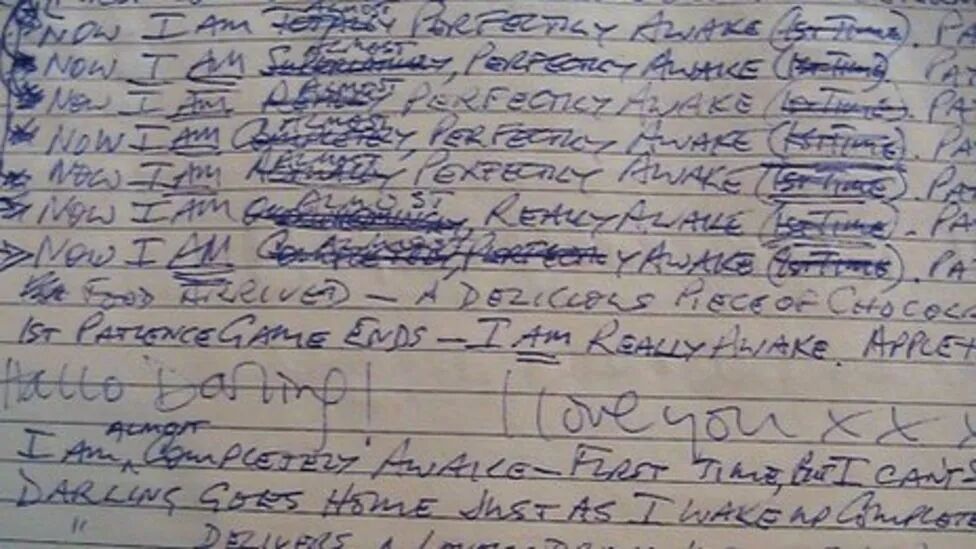 NOW I AM TOTALLY ALMOST PERFECTLY AWAKE (1ST TIME). PA
NOW I AM ALMOST, PERFECTLY AWAKE (1ST TIME). PAT
NOW I AM ALMOST PERFECTLY AWAKE (1ST TIME). PA
NOW I AM COMPLETELY ALMOST, PERFECTLY AWAKE (1ST TIME). PA
NOW I AM ALMOST PERFECTLY AWAKE (1ST TIME). PA
NOW I AM ALMOST, REALLY AWAKE (1ST TIME). PA
NOW I AM COMPLETELY ALMOST, PERFECTLY AWAKE (1ST TIME). PAT
FOOD ARRIVED – A DELICIOUS PIECE OF CHOCOL
1ST PATIENCE GAME ENDS – I AM REALLY AWAKE. APPLET
Hallo Darling! I love you x x x
I AM, ALMOST COMPLETELY AWAKE – FIRST TIME, BUT I CAN'T
DARLING GOES HOME JUST AS I WAKE UP COMPLETE
" DELIVERS A